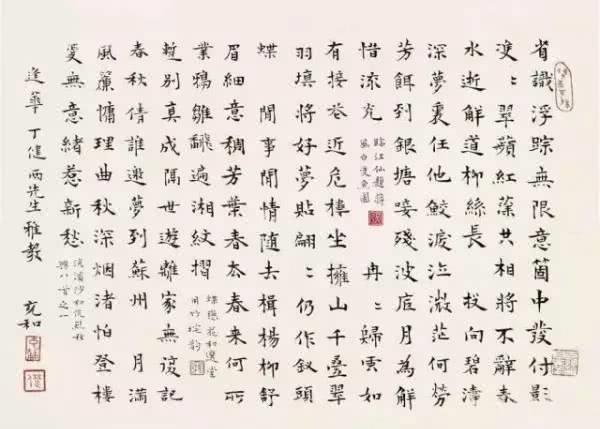 省識浮踪無限意箇中發付影
雙〻翠蘋紅藻共相將不辭春
水逝解道柳絲長 投向碧濤
深夢裏任他鮫淚泣微茫何勞
芳餌到銀塘唼殘波底月為解
惜流光
臨江仙題蔣
風白雙魚圖
冉〻歸雲如
有接卷近危樓坐擁山千疊翠
羽填將好夢貼翩〻仍作釵頭
蝶 閒事閒情隨去楫楊柳舒
眉細意稠芳葉春去春來何所
業鴉雛飜遍湘紋摺
蝶戀花和選堂
用竹垞韻
蹔別真成隔世遊離家無復記
春秋倩誰邀夢到蘇州 月滿
風簾慵理曲秋深烟渚怕登樓
更無意緒惹新愁
浣溪沙
八首之一
逢華 丁健兩先生雅教
充和